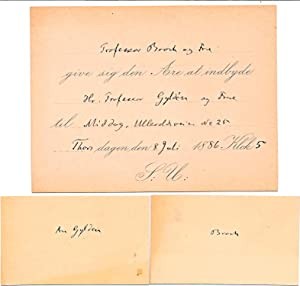 Professor Broch og Frue
give sig den Ære at indbyde
Hr. Professor Gyldén og Frue
til Middag, Ullevoldsveien No 25
Thorsdagen den 8 Juli 1886. Klok 5
S. U:
An Gyldén
Broch